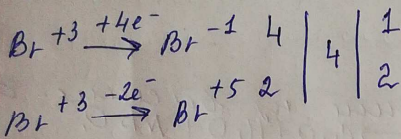 Br +3 +4e⁻ → Br −1 4 | 4 | 1
Br +3 −2e⁻ → Br +5 2 | | 2